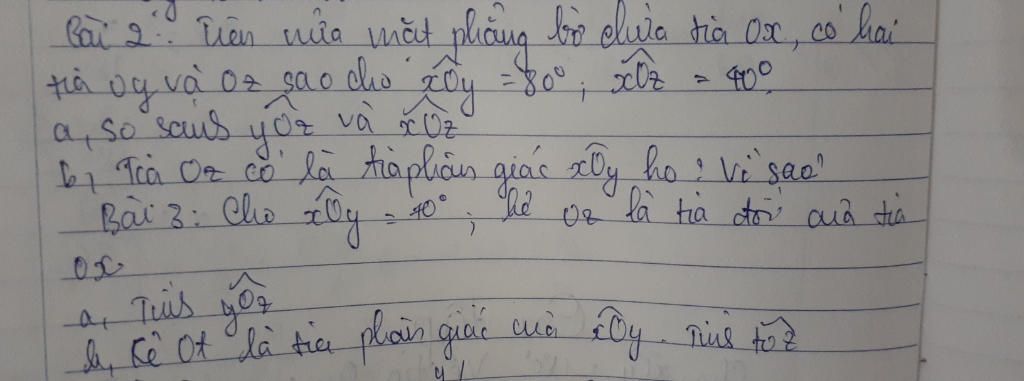 Bài 2: Trên nửa mặt phẳng bờ chứa tia Ox, có hai
tia Oy và Oz sao cho xÔy = 80°; xÔz = 40°.
a, So sánh yÔz và xÔz
b, Tia Oz có là tia phân giác xÔy ko? Vì sao?
Bài 3: Cho xÔy = 70°; kẻ Oz là tia đối của tia
Ox
a, Tính yÔz
b, Kẻ Ot là tia phân giác của xÔy. Tính tÔz